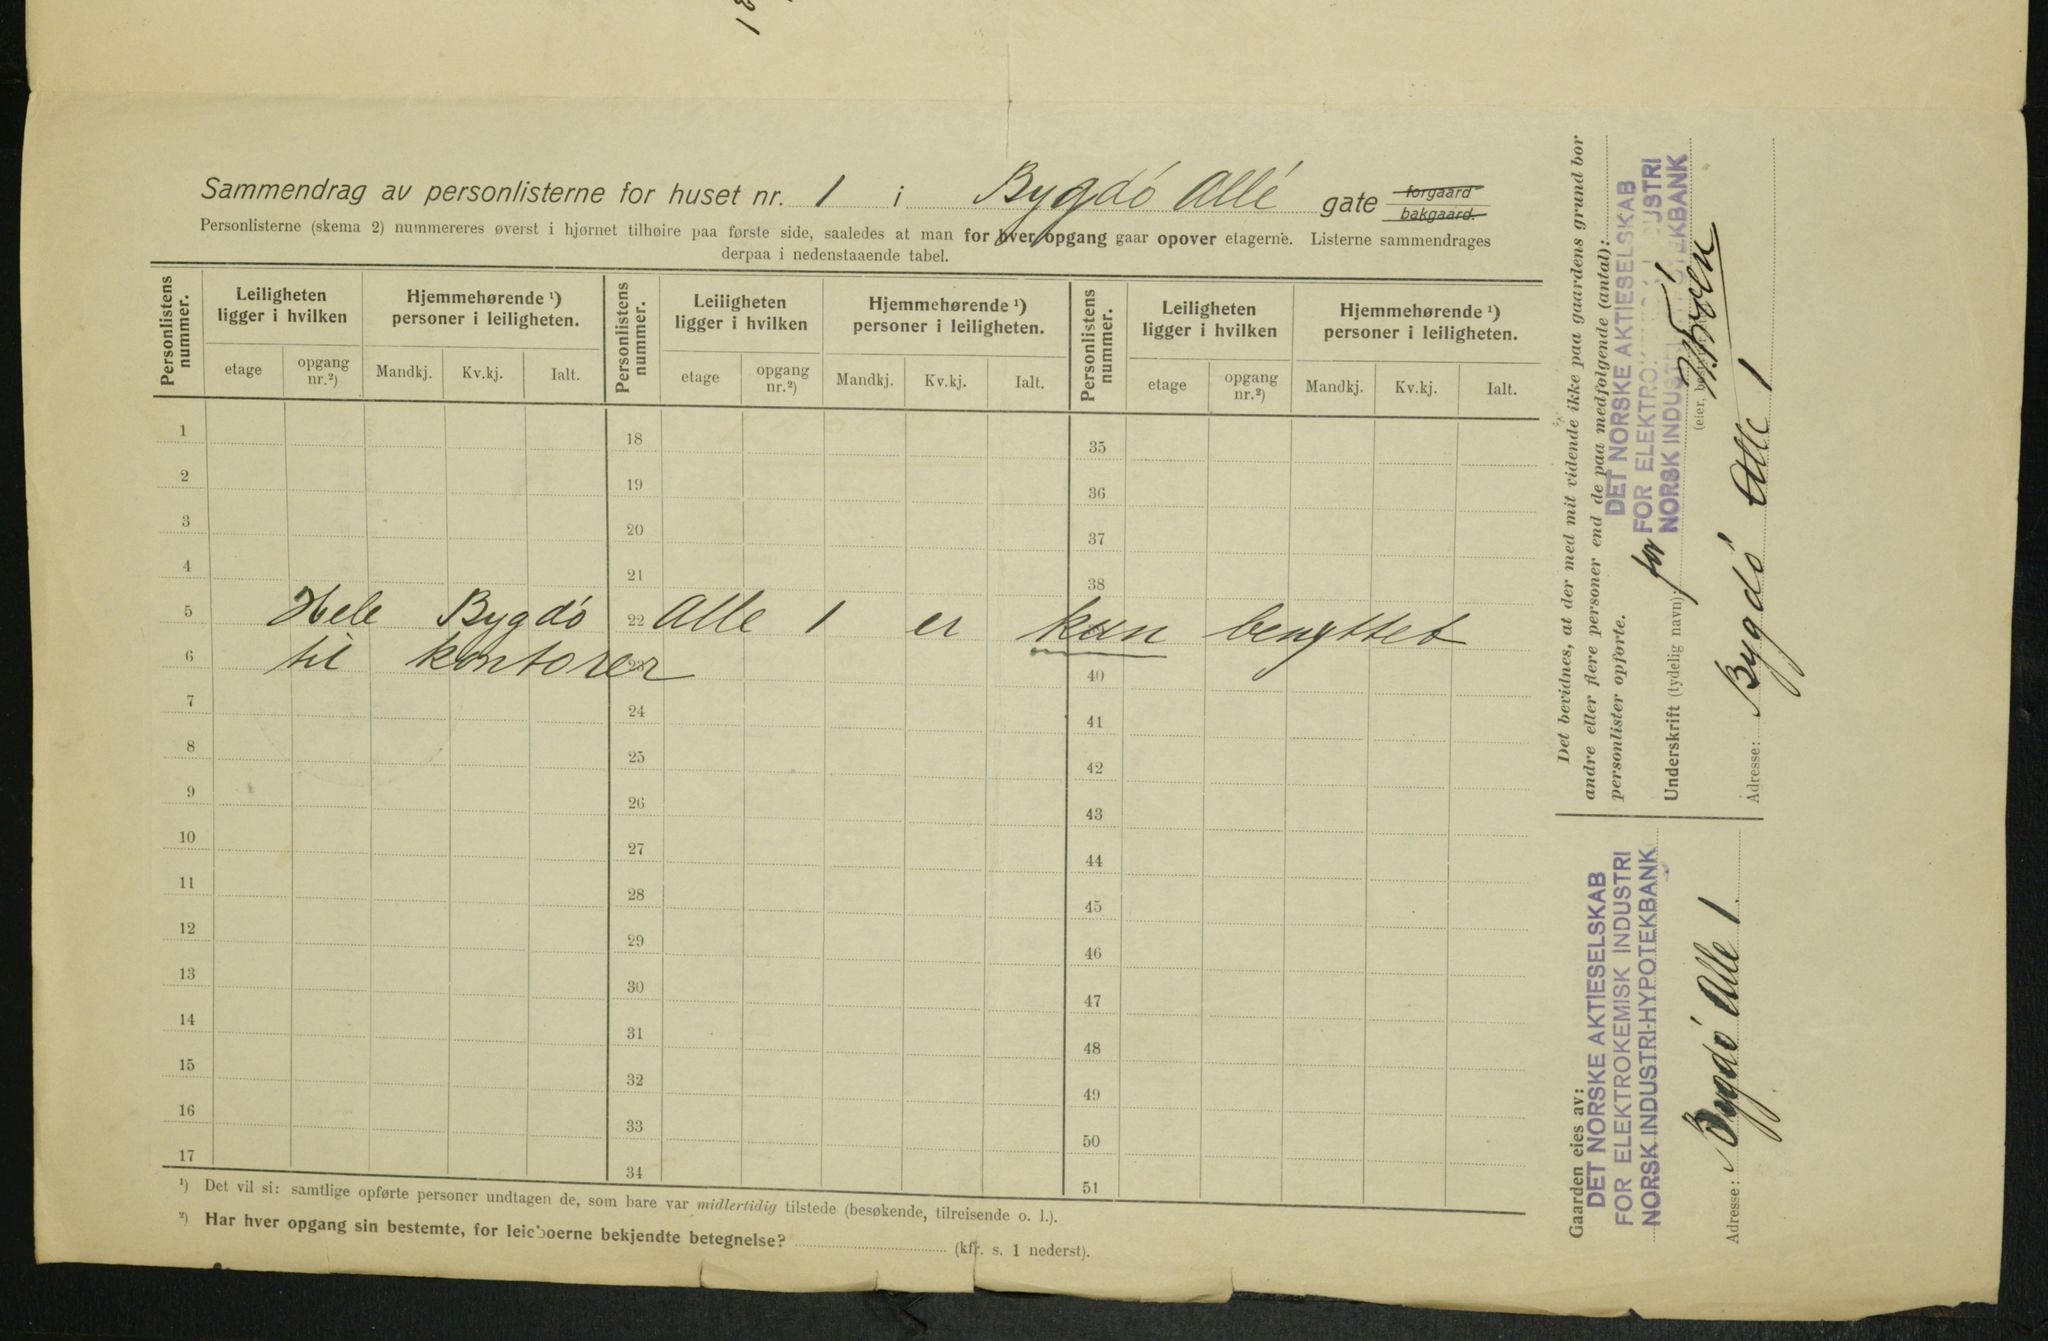 Sammendrag av personlisterne for huset nr. 1 i Bygdö Allé gate forgaard bakgaard.
Personlisterne (skema 2) nummereres øverst i hjørnet tilhøire paa første side, saaledes at man for hver opgang gaar opover etagerne. Listerne sammendrages
derpaa i nedenstaaende tabel.
Personlistens nummer. Leiligheten ligger i hvilken Hjemmehørende ¹) personer i leiligheten. Personlistens nummer. Leiligheten ligger i hvilken Hjemmehørende ¹) personer i leiligheten. Personlistens nummer. Leiligheten ligger i hvilken Hjemmehørende ¹) personer i leiligheten.
etage opgang nr.²) Mandkj. Kv.kj. Ialt. etage opgang nr.²) Mandkj. Kv.kj. Ialt. etage opgang nr.²) Mandkj. Kv.kj. Ialt.
1 18 35
2 19 36
3 20 37
4 21 38
5 22
Hele Bygdö Alle 1 er kun benyttet
6 23 40
til kontorer
7 24 41
8 25 42
9 26 43
10 27 44
11 28 45
12 29 46
13 30 47
14 31 48
15 32 49
16 33 50
17 34 51
¹) Det vil si: samtlige opførte personer undtagen de, som bare var midlertidig tilstede (besøkende, tilreisende o. l.).
²) Har hver opgang sin bestemte, for leieboerne bekjendte betegnelse? (kfr. s. 1 nederst).
Det bevidnes, at der med mit vidende ikke paa gaardens grund bor
andre eller flere personer end de paa medfolgende (antal):
personlister opforte.
DET NORSKE AKTIESELSKAB
FOR ELEKTRO USTRI
NORSK INDUST EKBANK
Underskrift (tydelig navn): for
(eier,
Adresse: Bygdö Alle 1
Gaarden eies av:
DET NORSKE AKTIESELSKAB
FOR ELEKTROKEMISK INDUSTRI
NORSK INDUSTRI-HYPOTEKBANK
Adresse: Bygdö Alle 1